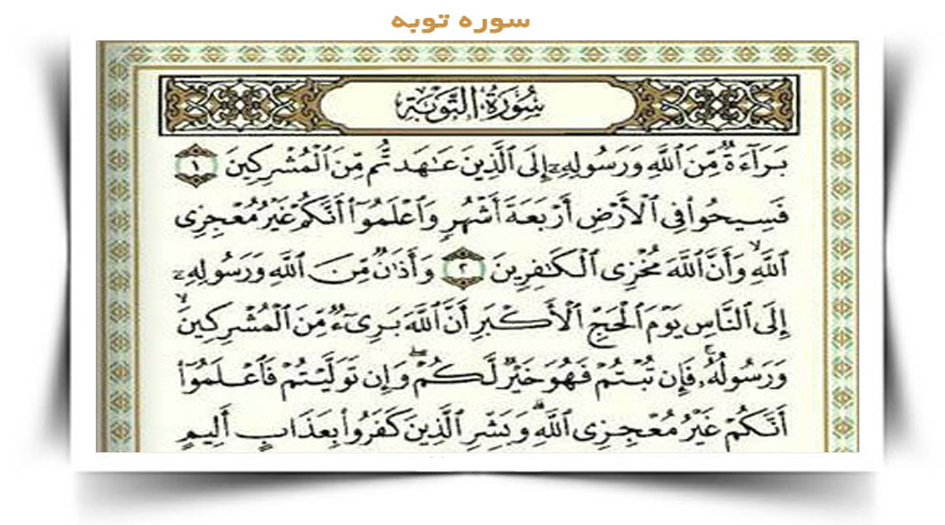 سوره توبه
سُورَةُ التَّوْبَةِ
بَرَآءَةٌ مِّنَ ٱللَّهِ وَرَسُولِهِۦٓ إِلَى ٱلَّذِينَ عَـٰهَدتُّم مِّنَ ٱلْمُشْرِكِينَ ١
فَسِيحُوا۟ فِى ٱلْأَرْضِ أَرْبَعَةَ أَشْهُرٍ وَٱعْلَمُوٓا۟ أَنَّكُمْ غَيْرُ مُعْجِزِى
ٱللَّهِ ۙ وَأَنَّ ٱللَّهَ مُخْزِى ٱلْكَـٰفِرِينَ ٢ وَأَذَٰنٌ مِّنَ ٱللَّهِ وَرَسُولِهِۦٓ
إِلَى ٱلنَّاسِ يَوْمَ ٱلْحَجِّ ٱلْأَكْبَرِ أَنَّ ٱللَّهَ بَرِىٓءٌ مِّنَ ٱلْمُشْرِكِينَ ۙ
وَرَسُولُهُۥ ۚ فَإِن تُبْتُمْ فَهُوَ خَيْرٌ لَّكُمْ ۖ وَإِن تَوَلَّيْتُمْ فَٱعْلَمُوٓا۟
أَنَّكُمْ غَيْرُ مُعْجِزِى ٱللَّهِ ۗ وَبَشِّرِ ٱلَّذِينَ كَفَرُوا۟ بِعَذَابٍ أَلِيمٍ